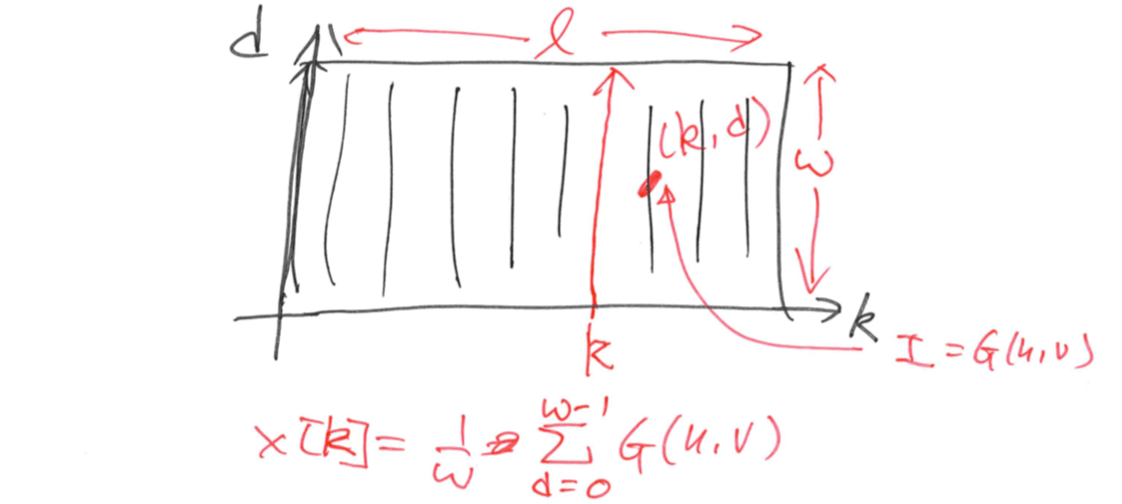 d
l
(k, d)
w
k
k
I = G(u, v)
x[k] = 1/w ∑_{d=0}^{w-1} G(u, v)